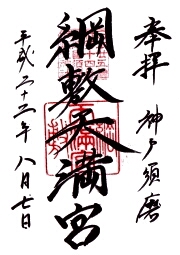 奉拝 神戸須磨
綱敷天満宮
平成二十二年八月七日